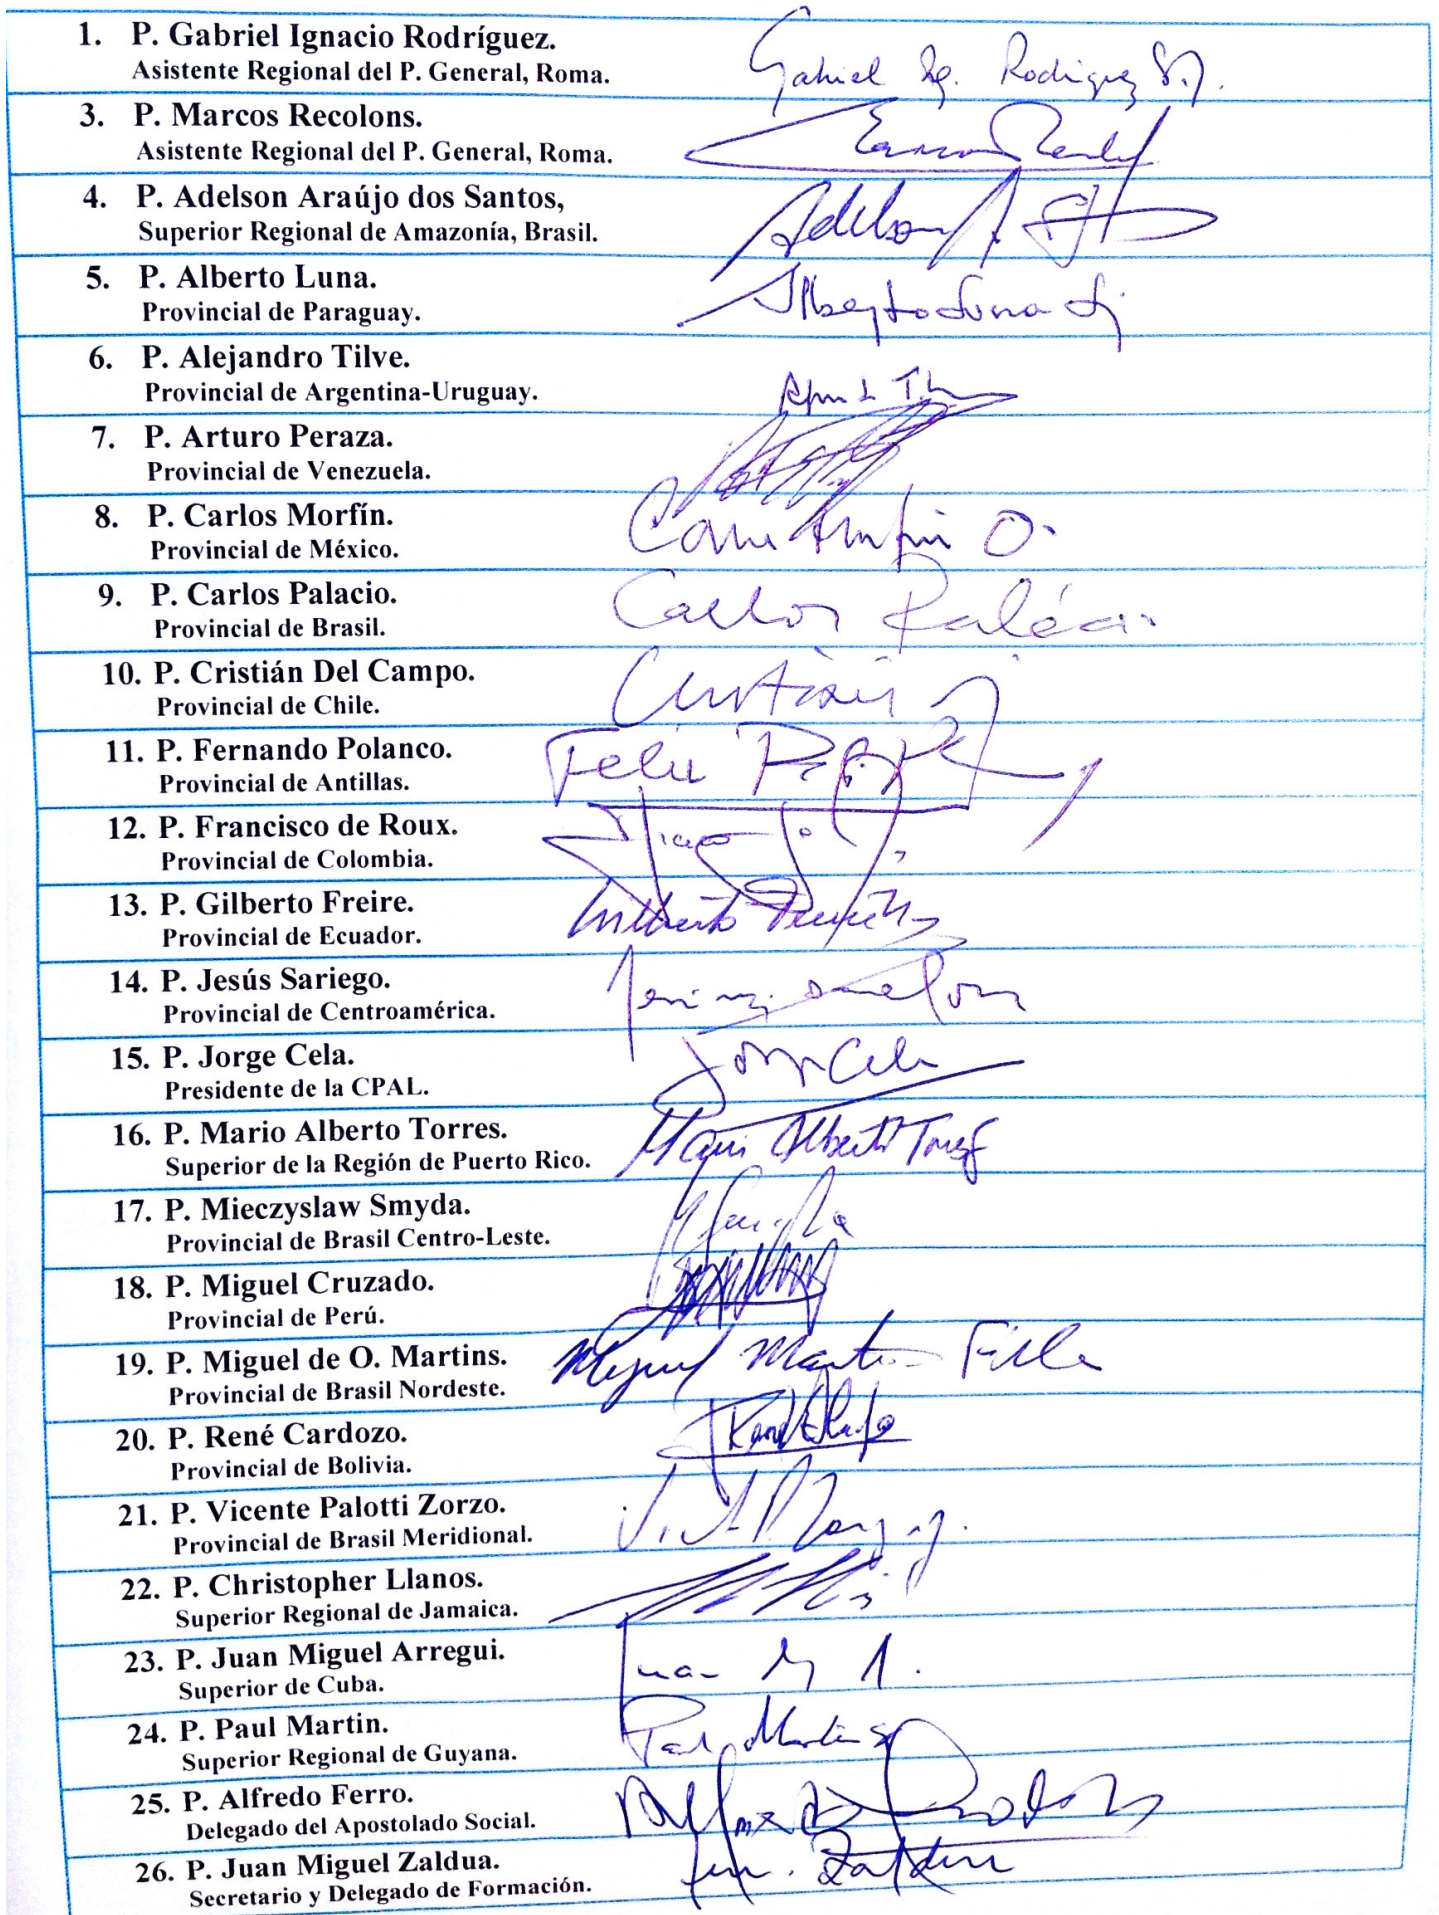 1. P. Gabriel Ignacio Rodríguez.
Asistente Regional del P. General, Roma.
Gabriel Ig. Rodríguez S.J.
3. P. Marcos Recolons.
Asistente Regional del P. General, Roma.
4. P. Adelson Araújo dos Santos,
Superior Regional de Amazonía, Brasil.
Adelson A.
5. P. Alberto Luna.
Provincial de Paraguay.
Alberto Luna sj
6. P. Alejandro Tilve.
Provincial de Argentina-Uruguay.
7. P. Arturo Peraza.
Provincial de Venezuela.
8. P. Carlos Morfín.
Provincial de México.
Carlos Morfín O.
9. P. Carlos Palacio.
Provincial de Brasil.
Carlos Palácio
10. P. Cristián Del Campo.
Provincial de Chile.
Cristián
11. P. Fernando Polanco.
Provincial de Antillas.
12. P. Francisco de Roux.
Provincial de Colombia.
13. P. Gilberto Freire.
Provincial de Ecuador.
Gilberto Freire
14. P. Jesús Sariego.
Provincial de Centroamérica.
15. P. Jorge Cela.
Presidente de la CPAL.
Jorge Cela
16. P. Mario Alberto Torres.
Superior de la Región de Puerto Rico.
Mario Alberto Torres
17. P. Mieczyslaw Smyda.
Provincial de Brasil Centro-Leste.
18. P. Miguel Cruzado.
Provincial de Perú.
19. P. Miguel de O. Martins.
Provincial de Brasil Nordeste.
Miguel Martins Filho
20. P. René Cardozo.
Provincial de Bolivia.
21. P. Vicente Palotti Zorzo.
Provincial de Brasil Meridional.
22. P. Christopher Llanos.
Superior Regional de Jamaica.
23. P. Juan Miguel Arregui.
Superior de Cuba.
Juan M A.
24. P. Paul Martin.
Superior Regional de Guyana.
Paul Martin SJ
25. P. Alfredo Ferro.
Delegado del Apostolado Social.
26. P. Juan Miguel Zaldua.
Secretario y Delegado de Formación.